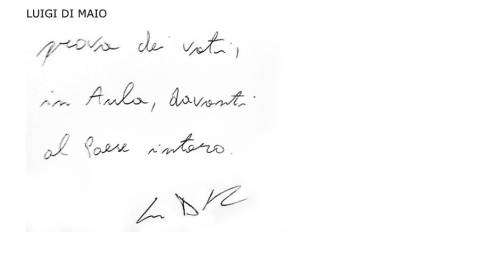 LUIGI DI MAIO
prova dei voti,
in Aula, davanti
al Paese intero.